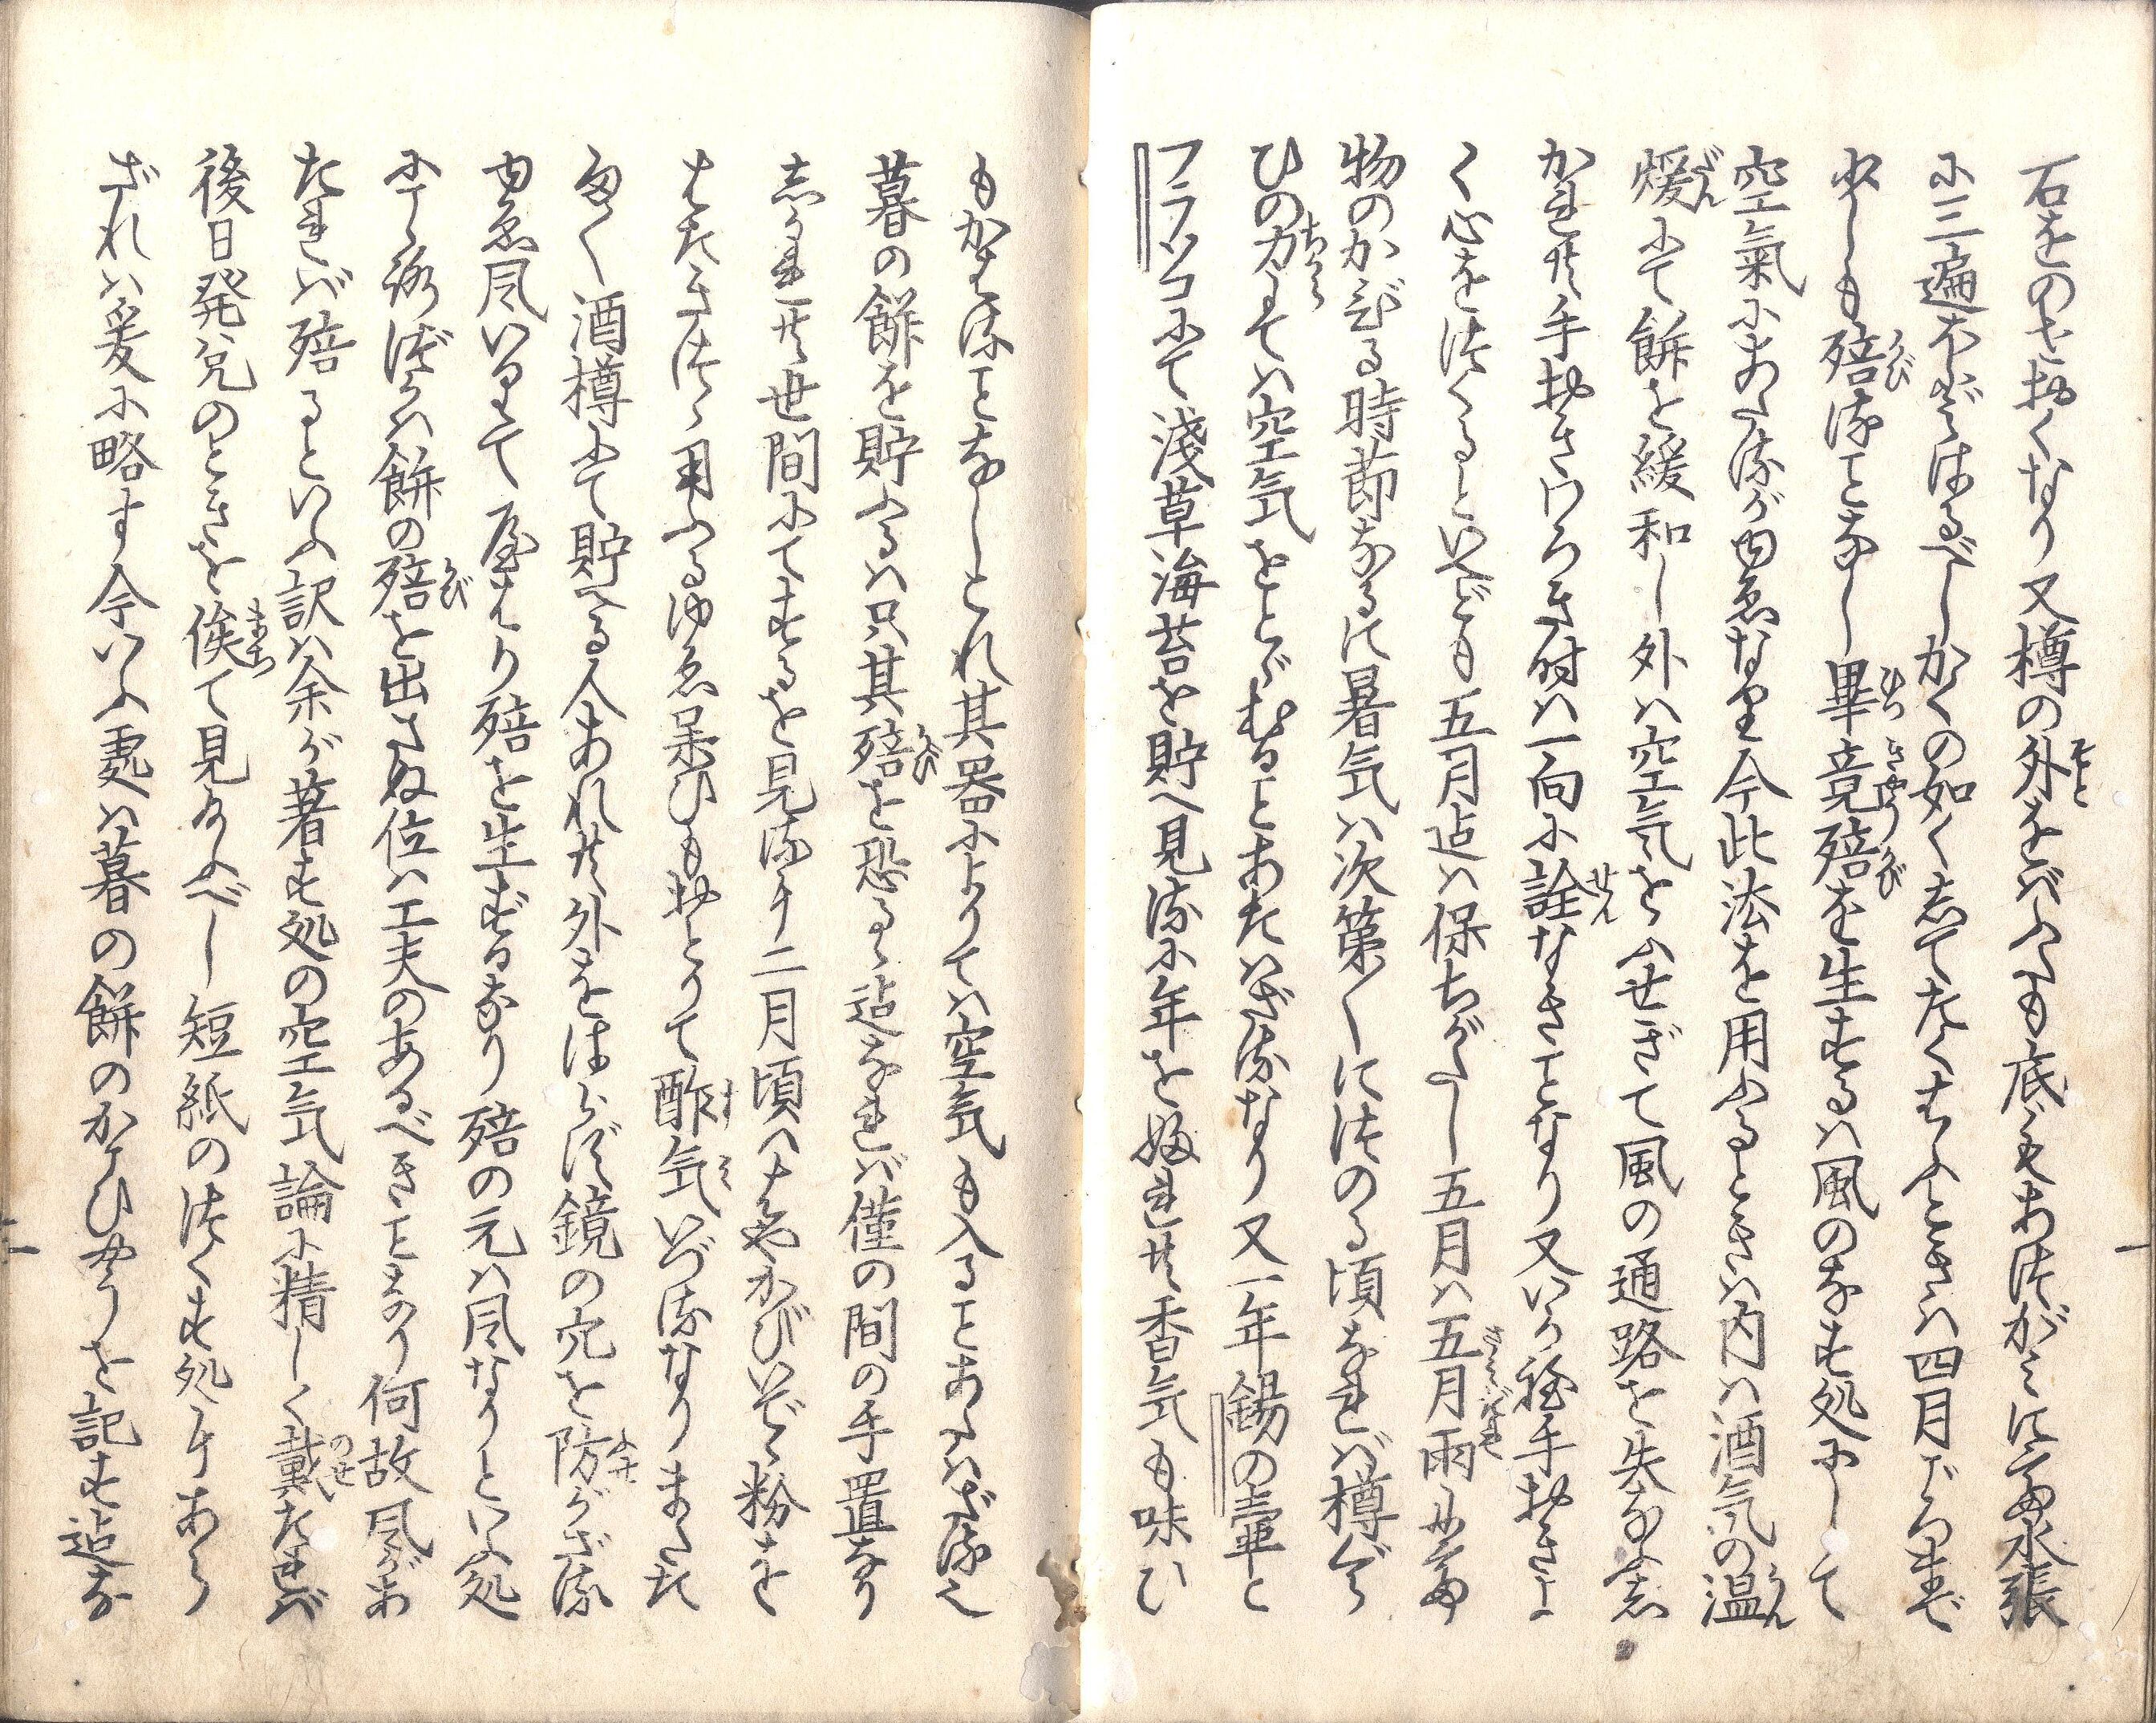 石をのせおくなり又樽の外をバふくも底もあつがみにて水張
に三遍ほどはるべしかくの如くしてたくはふときハ四月ごろまで
少しも殕ることなし畢竟殕を生ずるハ風のなす処にして
空氣にあたるがゆゑなり今此法を用ふるときハ内ハ酒気の温
煖にて餅を緩和し外ハ空気をふせぎて風の通路を失なふ
かれ共手おきわろき時ハ一向に詮なきことなり又いか程手おきよ
く心をつくるといへども五月迄ハ保ちがたし五月ハ五月雨にて
物のかびる時節なるに暑気ハ次第〱につのる頃なれバ樽ぐら
ひの力にてハ空気をとゞむることあたハざるなり又一年錫の壷と
フラソコにて淺草海苔を貯へ見るに年を経れ共香気も味ひ
もかはることなしこれ其器によりてハ空気も入ることあたハざるゆゑ
暮の餅を貯ふるハ只其殕を恐るゝ迄なれバ僅の間の手置なり
しかれ共世間にてするを見るに二月頃ハはやかびいで粉を
はたきつゝ用ふるゆゑ味ひもおとりて酢気いづるなりまた
多く酒樽にて貯へる人あれ共外をはらず鏡の穴を防がざる
ゆゑ風いりて尿はり殕を生ずるなり殕の元ハ風なりといふ処
にて餅の殕を出さぬ位ハ工夫のあるべきことなり何故風があ
たれバ殕るといふ訳ハ余が著す処の空気論に精しく載たれバ
後日発兌のときを俟て見給ふべし短紙のつくす処にあら
ざれハ爰に略す今いふ処ハ暮の餅のかこひやうを記す迄な